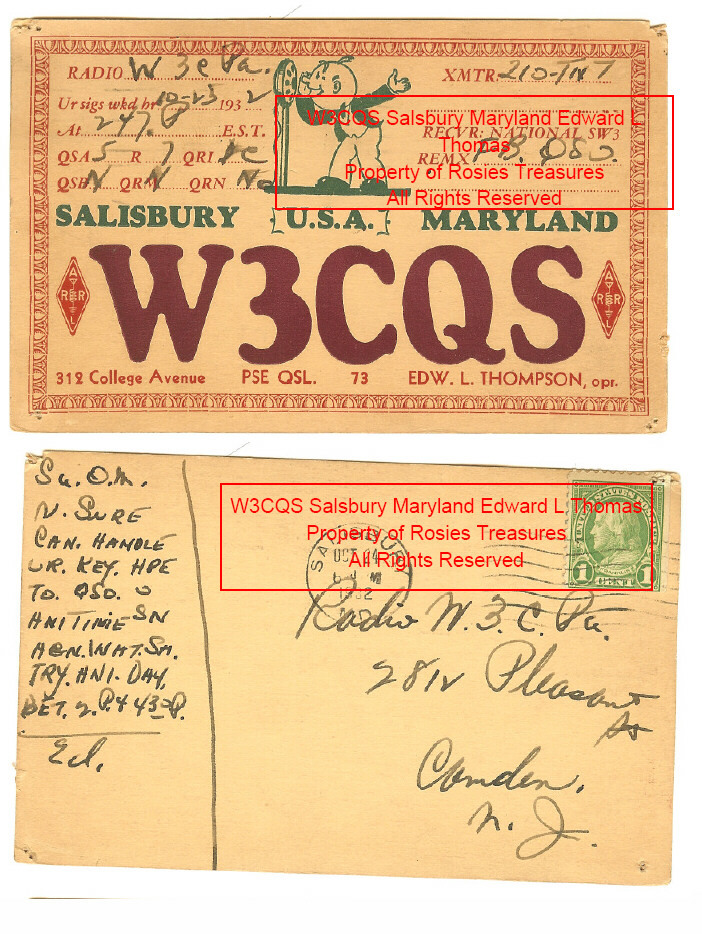 RADIO W 3C Pa. XMTR 210-TNT
Ur sigs wkd hr 10-23 1932
At 247. P E.S.T. RECVR: NATIONAL SW3
QSA 5 R 7 QRI DC REMX FB. QSO.
QSB N QRM N QRN No
W3CQS Salsbury Maryland Edward L
Thomas
Property of Rosies Treasures
All Rights Reserved
SALISBURY U.S.A. MARYLAND
W3CQS
A R R L
A R R L
312 College Avenue PSE QSL. 73 EDW. L. THOMPSON, opr.
Su. O.M.
U. SURE
CAN. HANDLE
UR. KEY. HPE
TO. QSO. U
ANITIME SN
AGN. WAT. SA.
TRY. ANI. DAY,
BET. 2.P. & 4 30 P.
Ed.
W3CQS Salsbury Maryland Edward L Thomas
Property of Rosies Treasures
All Rights Reserved
SALISBURY
OCT 24
M
1932
MD.
1 1
Radio W. 3. C. Pa.
2812 Pleasant
St
Camden.
N. J.